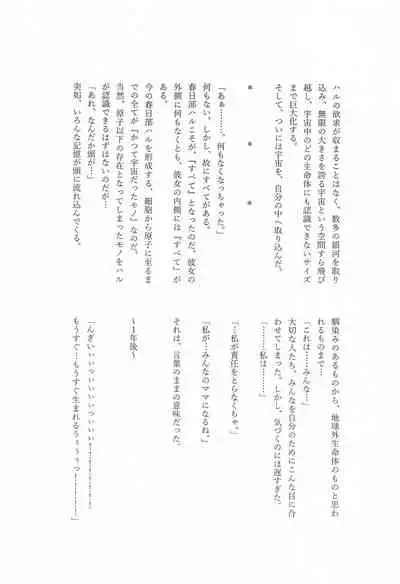 ハルの欲求が収まることはなく、数多の銀河を取り
込み、無限の大きさを誇る宇宙という空間すら飛び
越し、宇宙中のどの生命体にも認識できないサイズ
まで巨大化する。
そして、ついには宇宙を、自分の中へ取り込んだ。
* * *
「あぁ………。何もなくなっちゃった。」
何もない、しかし、故にすべてがある。
春日部ハルこそが、『すべて』となったのだ。彼女の
外側に何もなくとも、彼女の内側には『すべて』が
ある。
今の春日部ハルを形成する、細胞から原子に至るま
での全てが『かつて宇宙だったモノ』なのだ。
当然、原子以下の存在となってしまったモノをハル
が認識できるはずはないのだが…
「あれ、なんだか頭が…」
突如、いろんな記憶が頭に流れ込んでくる。
馴染みのあるものから、地球外生命体のものと思わ
れるものまで…
「これは……みんな…」
大切な人たち、みんなを自分のためにこんな目に合
わせてしまった。しかし、気づくのには遅すぎた。
「………私は………」
「…私が責任をとらなくちゃ。」
「私が…みんなのママになるね。」
それは、言葉のままの意味だった。
〜1年後〜
「んぎいぃぃっぃいぃぃいっいぃぃ
もうすぐ…もうすぐ生まれるぅぅぅっ